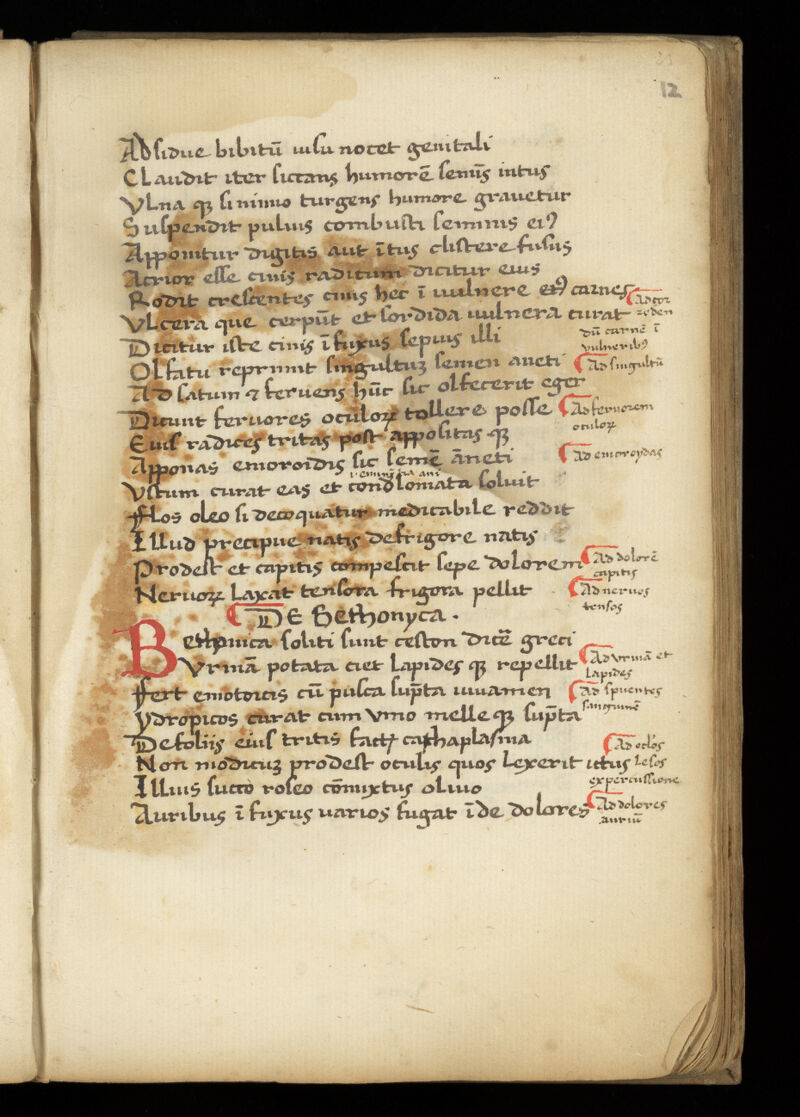 12
Assidue bibitū uisu nocet genitali
Claudit iter siccans humorē semīs intus
Vlna qȝ si nimio turgens humore grauetur
Suspendit puluis combusti seminis ei9
Apponitur digitis aut ītus clistere fusus
Acrior esse cinis radicum dicitur eius
Rodit crescentes cinis hec ī uulnere et9 carnes
Vlcera que serpūt et sordida uulnera curat
Ad
dū carnē ī
vulnerib9
Dicitur iste cinis īfuxus sepius illi
Olfatu reprimit singultuȝ semen aneti
Ad singultū
Ad satum ⁊ feruens hūc sic olfecerit eger
Dicunt feruores oculoꝝ tollere posse
Ad feruorem
oculoꝝ
Eius radices tritas post appositas qȝ
Apponas emoroidis sic semē āneti
Ad emoroydas
Vstum curat eas et condlomata soluit
Flos oleo si decoquatur medicabile reddit
Illud precipue natis de frigore natis
Prodest et capitis compescit sepe dolorem
Ad dolorē
capitis
Neruoꝝ laxat tensora frigora pellit
Ad neruos
tensos
De Bethonyca .
Bethonica soliti sunt ceston dicē greci
Vrinā potata ciet lapides qȝ repellit
Ad vrinā et
lapides
Fert emotoicis cū pusca sūpta iuuamen
Ad spuentes
sanguinē
Ydropicos curat cum vino melle qȝ sūpta
De foliis eius tritis fact cathaplasma
Non modicuȝ prodest oculis quos lexerit ictus
Ad oclos
lesos
ex percussione
Illius succo roseo cōmixtus oliuo
Auribus ī fuxus uarios fugat īde dolores
Ad dolores
auriū